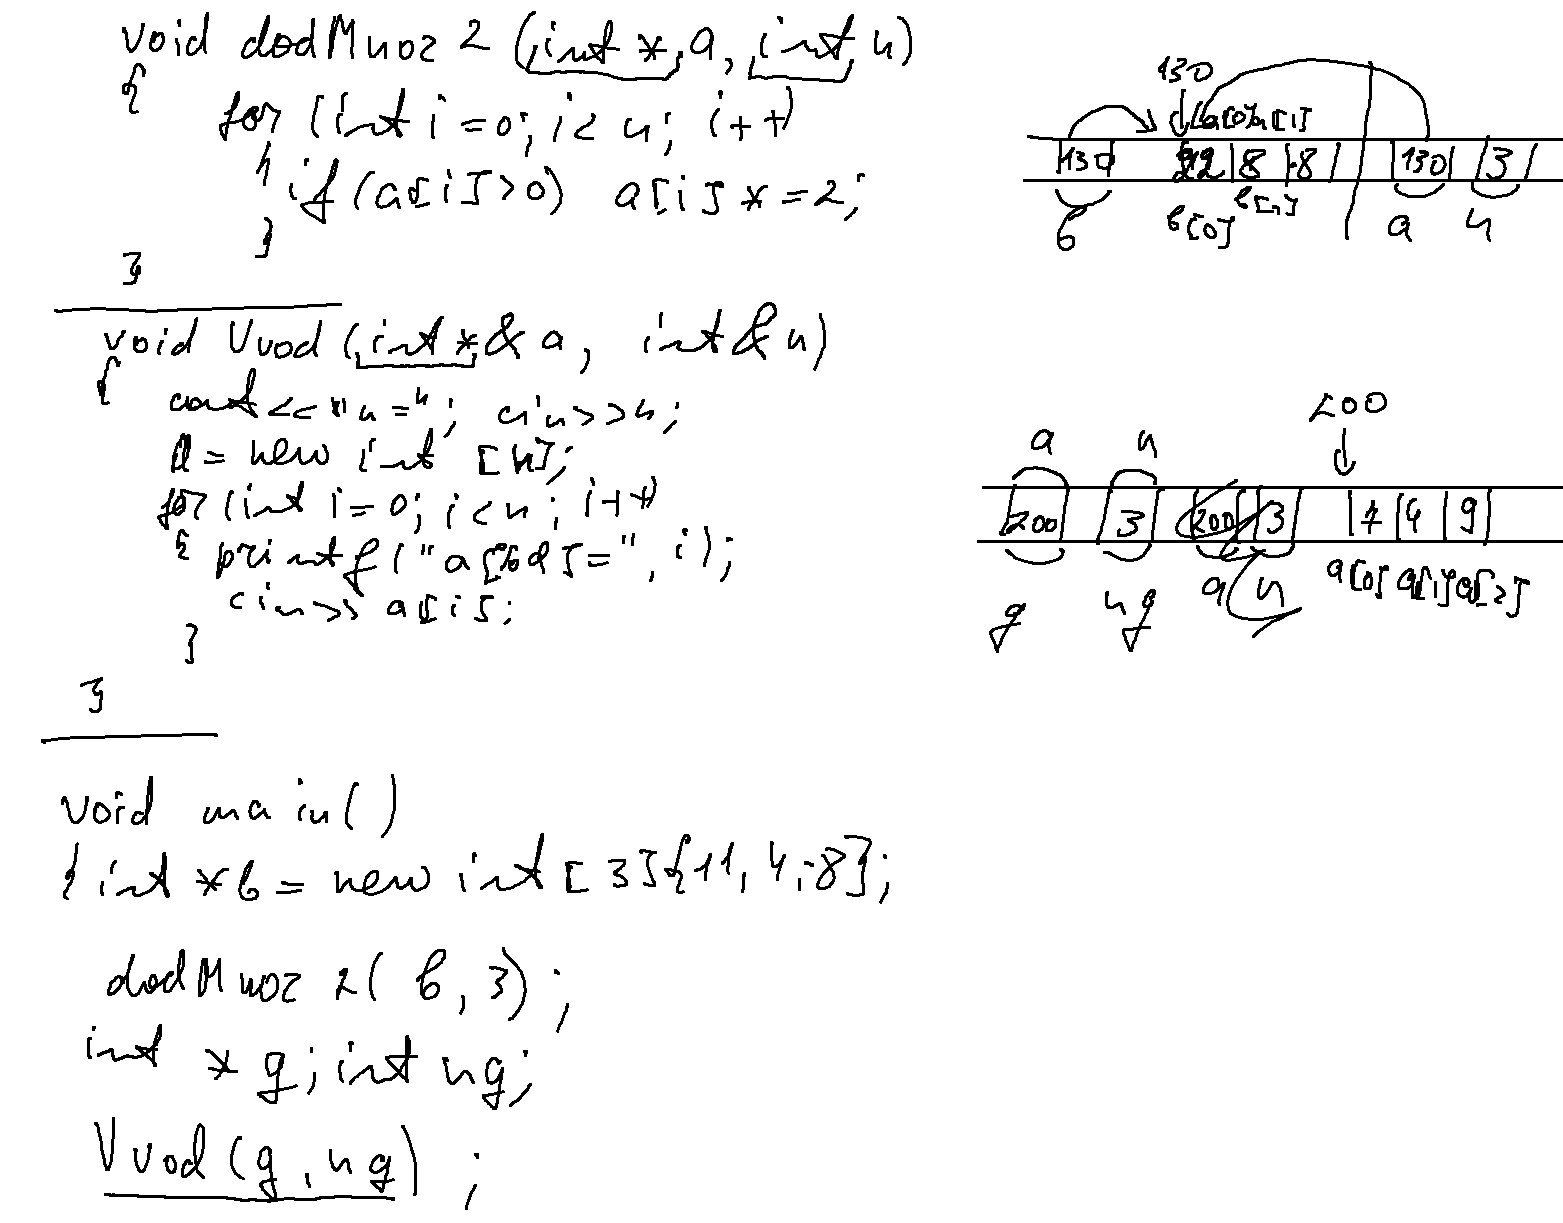 void dodMnoz2 (int *a, int n)
{
for (int i=0; i<n; i++)
{ if (a[i]>0) a[i]*=2;
}
}
void Vvod (int *& a, int & n)
{
cout<<"n="; cin>>n;
a = new int [n];
for (int i=0; i<n; i++)
{ printf("a[%d]=", i);
cin>> a[i];
}
}
void main()
{ int *b = new int[3]{11, 4,-8};
dodMnoz2( b, 3);
int *g; int ng;
Vvod(g, ng);
130
a[0] a[1]
130 22 8 -8 130 3
b b[0] b[1] a n
200
a n
200 3 200 3 7 4 9
g ng a n a[0] a[1] a[2]